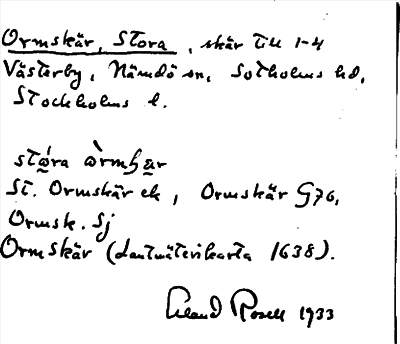 Ormskär, Stora, skär till 1-4
Västerby, Nämdö sn, Sotholms hd,
Stockholms l.
stώ̨ra ὰrmʃ̣ạr
St. Ormskär ek, Ormskär G76,
Ormsk. Sj
Ormskär (Lantmäterikarta 1638).
Erland Rosell 1933